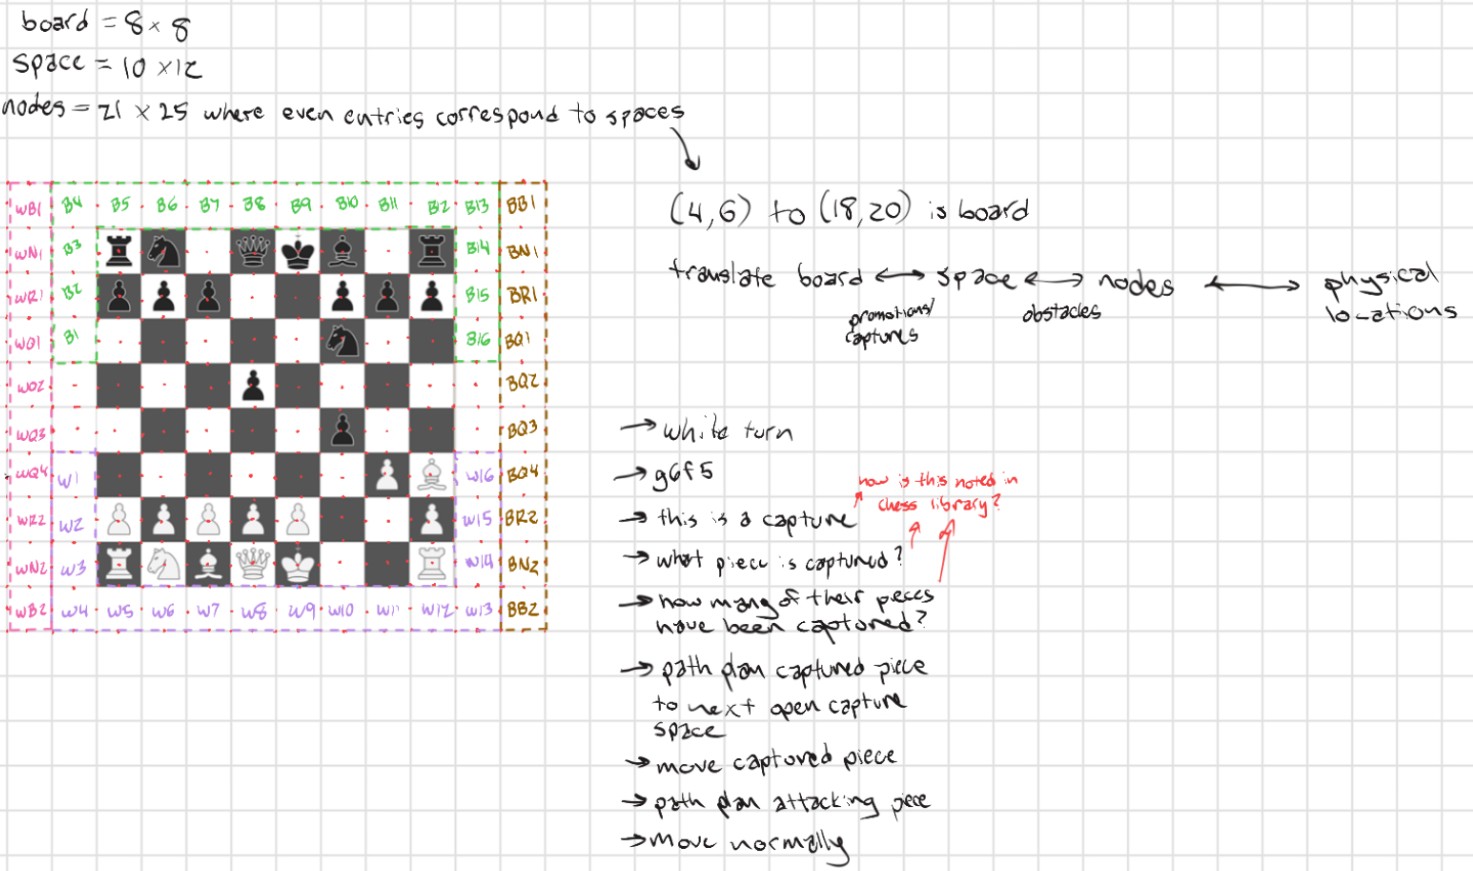 board = 8 x 8
space = 10 x 12
nodes = 21 x 25 where even entries correspond to spaces
(4,6) to (18,20) is board
translate board ↔ space ↔ nodes ↔ physical locations
promotions/
captures
obstacles
WB1 B4 B5 B6 B7 B8 B9 B10 B11 B12 B13 BB1
WN1 B3 B14 BN1
WR1 B2 B15 BR1
WQ1 B1 B16 BQ1
WQ2 BQ2
WQ3 BQ3
WQ4 W1 W16 BQ4
WR2 W2 W15 BR2
WN2 W3 W14 BN2
WB2 W4 W5 W6 W7 W8 W9 W10 W11 W12 W13 BB2
→ white turn
→ g6f5
→ this is a capture
how is this noted in
chess library?
→ what piece is captured?
→ how many of their pieces
have been captured?
→ path plan captured piece
to next open capture
space
→ move captured piece
→ path plan attacking piece
→ move normally